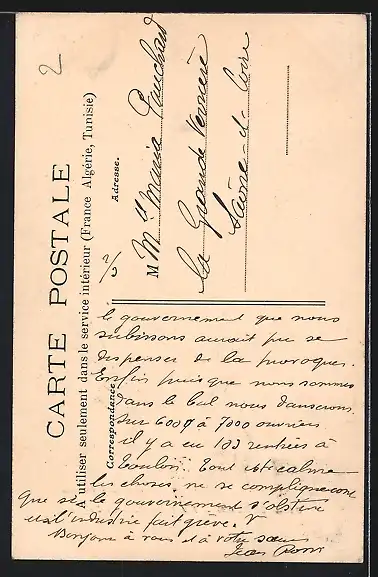 2
CARTE POSTALE
A utiliser seulement dans le service intérieur (France Algérie, Tunisie)
Correspondance
Adresse.
M Mlle Maria Pauchard
la Grande Verrière
Saône-et-Loire
le gouvernement que nous
subissons aurait pu se
dispenser de la provoquer.
Enfin puisque nous sommes
dans le bal nous danserons
Sur 6000 à 7000 ouvriers
il y a eu 103 rentrées à
Toulon. Tout est calme
les choses ne se compliqueront
que si le gouvernement s'obstine
et si l'industrie fait grève.
Bonjour à vous et à votre sœur
Jean